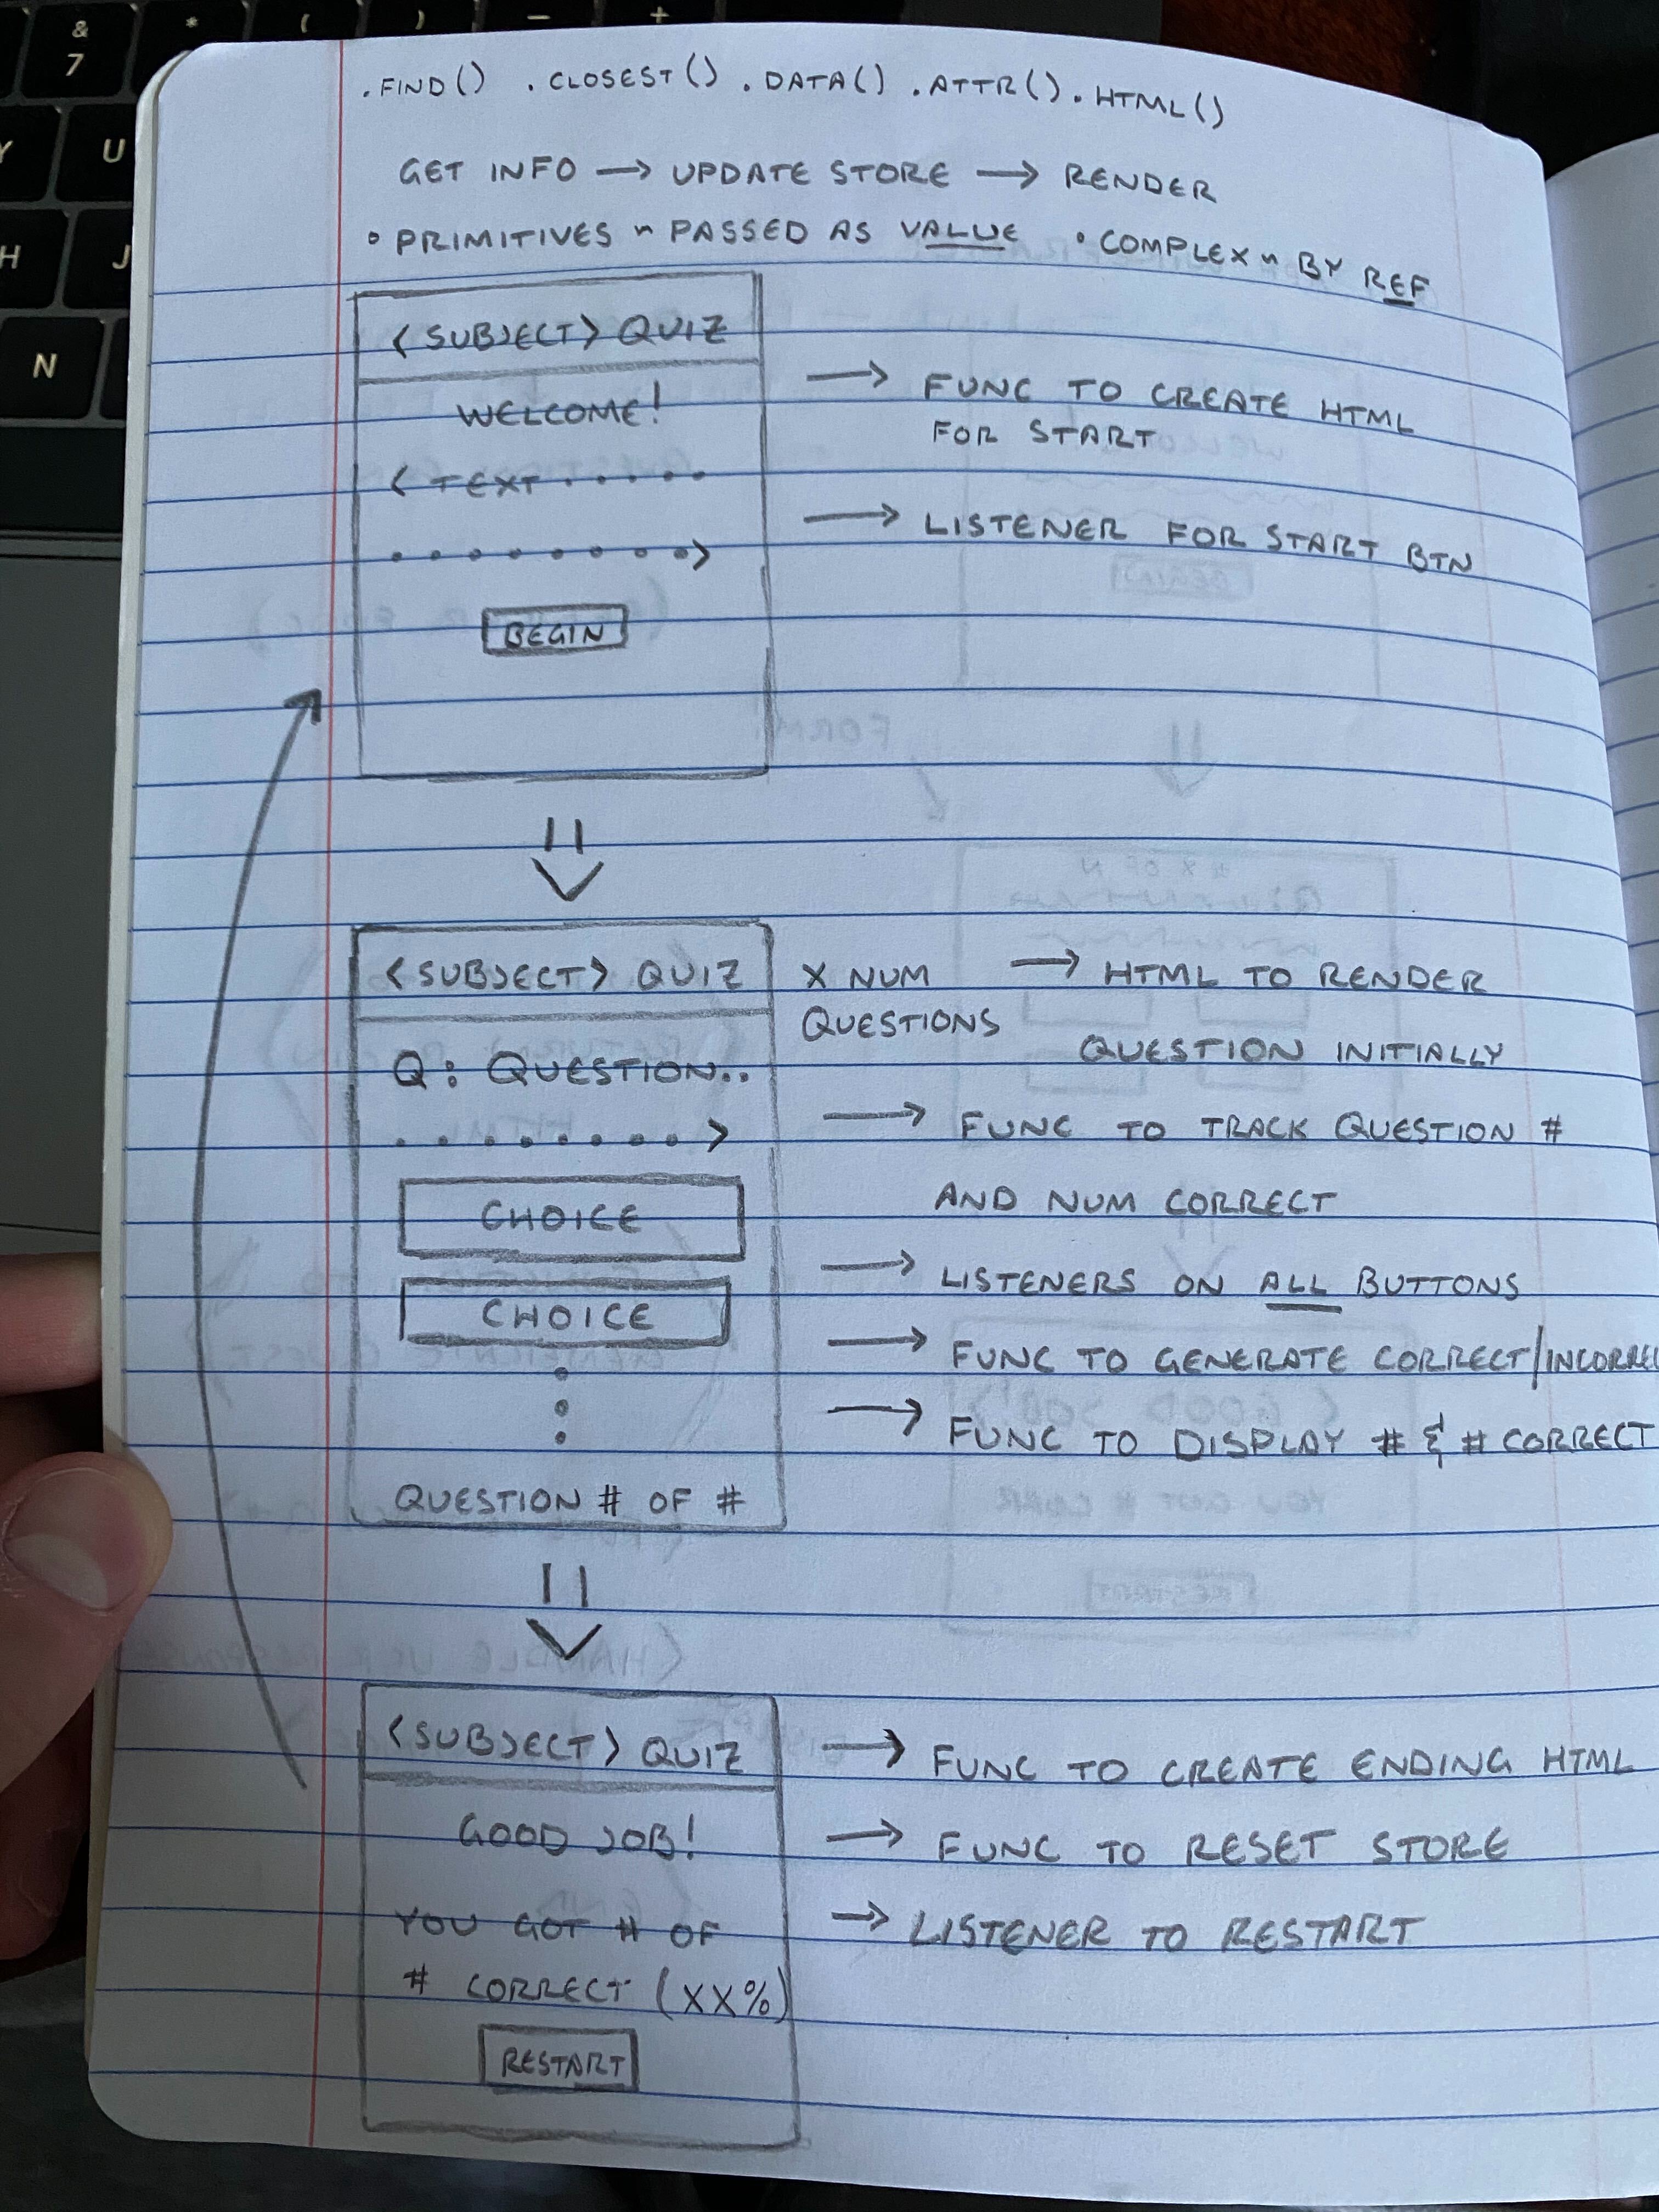 & * ( ) – +
7
Y U
H J
N
.FIND() .CLOSEST() .DATA() .ATTR() .HTML()
GET INFO → UPDATE STORE → RENDER
• PRIMITIVES ~ PASSED AS VALUE • COMPLEX ~ BY REF
<SUBJECT> QUIZ
WELCOME!
<TEXT.....
........>
BEGIN
→ FUNC TO CREATE HTML
FOR START
→ LISTENER FOR START BTN
<SUBJECT> QUIZ
Q: QUESTION..
........>
CHOICE
CHOICE
QUESTION # OF #
X NUM
QUESTIONS
→ HTML TO RENDER
QUESTION INITIALLY
→ FUNC TO TRACK QUESTION #
AND NUM CORRECT
→ LISTENERS ON ALL BUTTONS
→ FUNC TO GENERATE CORRECT/INCORREC
→ FUNC TO DISPLAY # & # CORRECT
<SUBJECT> QUIZ
GOOD JOB!
YOU GOT # OF
# CORRECT (XX%)
RESTART
→ FUNC TO CREATE ENDING HTML
→ FUNC TO RESET STORE
→ LISTENER TO RESTART